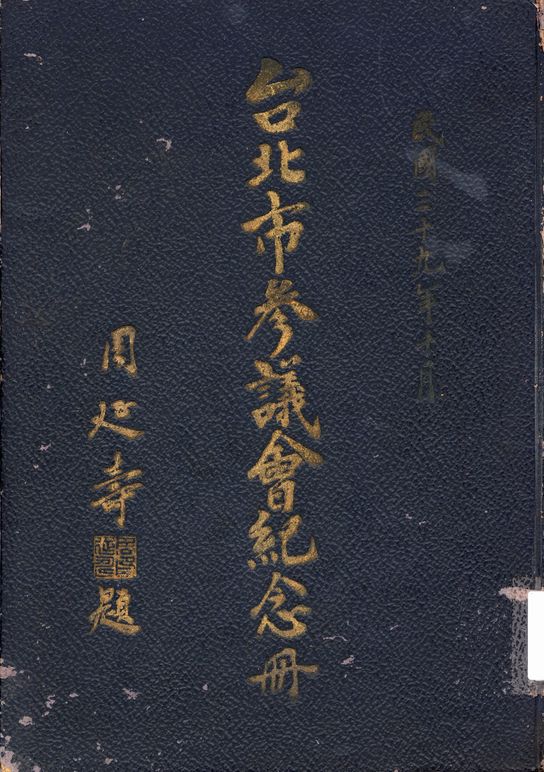 民國三十九年十月
台北市參議會紀念冊
周延壽題